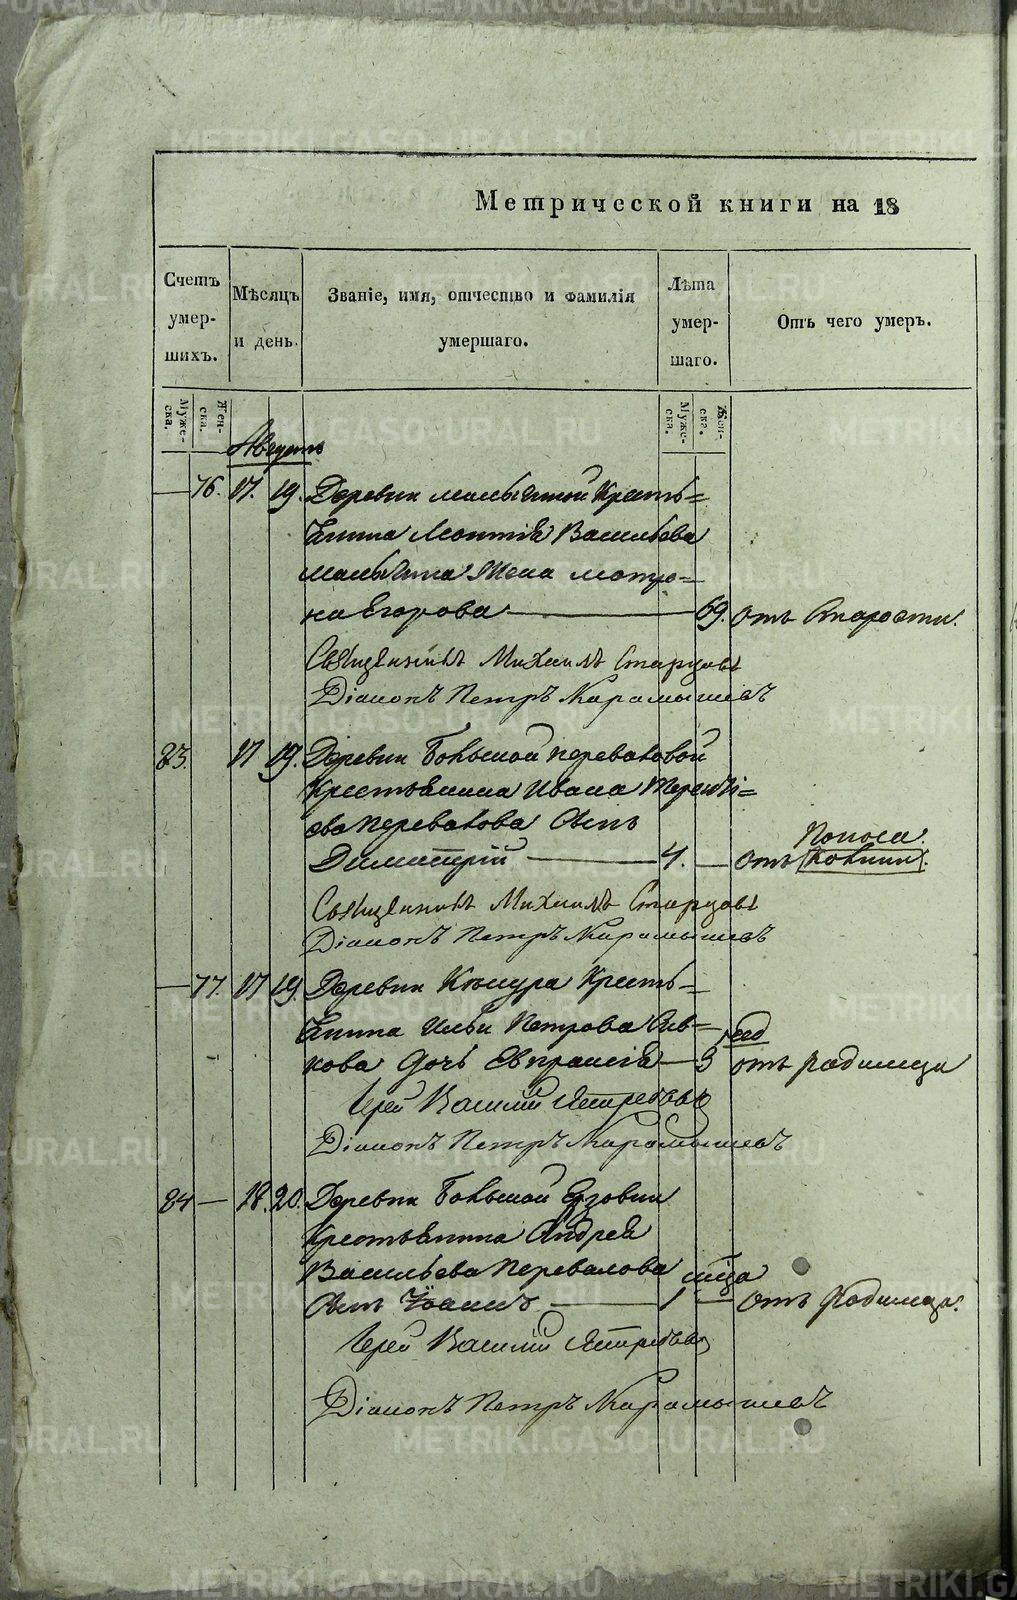 METRIKI.GASO-URAL.RU
Метрической книги на 18
Счетъ умер-шихъ.
Мѣсяцъ и день.
Званіе, имя, отчество и фамилія умершаго.
Лѣта умер-шаго.
Отъ чего умеръ.
Муже-ска.
Жен-ска.
Муже-ска.
Жен-ска.
Августъ
76. 17. 19. Деревни малыгиной Кресть=
янина Леонтія Васильева
малыгина Жена матро=
на Егорова 69. отъ Старости.
Священникъ Михаилъ Старцовъ
Діаконъ Петръ Карамышевъ
83. 17 19. Деревни Большой переваловой
Крестьянина Ивана
ева Перевалова Сынъ
Поноса.
Димитрій 4. отъ
Священникъ Михаилъ Старцовъ
Діаконъ Петръ Карамышевъ
77. 17 19. Деревни Кресть=
янина Ильи Петрова Сив=
нед
кова дочь Евпраксія 3 отъ родимца
Іерей Василій Ястребовъ
Діаконъ Петръ Карамышевъ
84 18. 20. Деревни Большой Ерзовки
Крестьянина Андрея
Васильева Перевалова мѣсца
Сынъ Іоаннъ 1 отъ Родимца.
Іерей Василій Ястребовъ
Діаконъ Петръ Карамышевъ